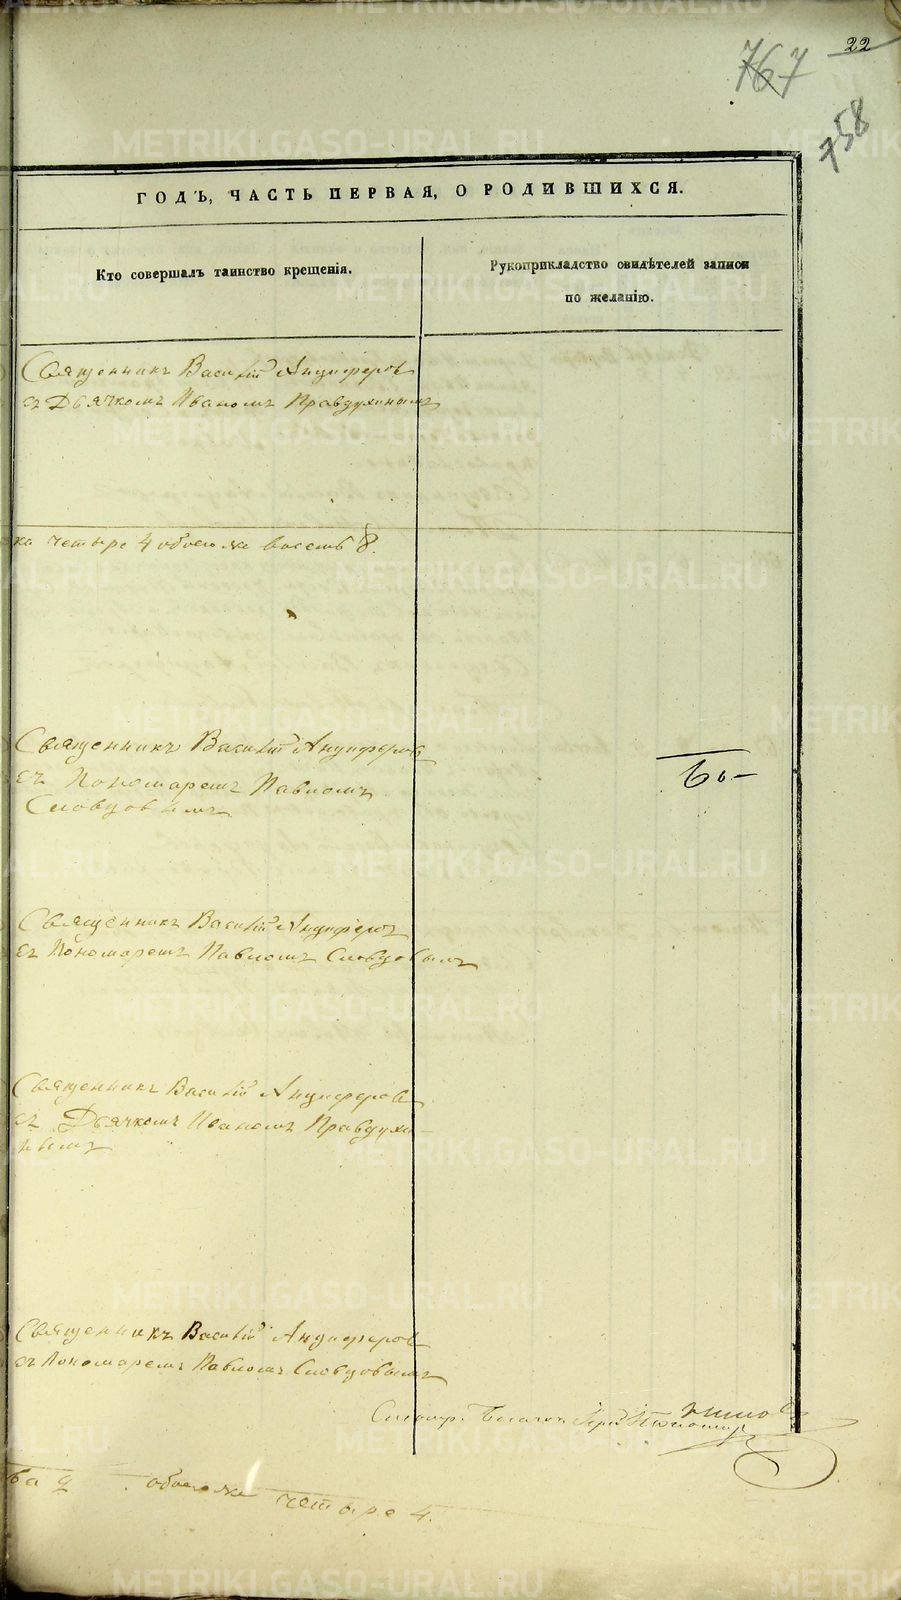 22
767
758
ГОДЪ, ЧАСТЬ ПЕРВАЯ, О РОДИВШИХСЯ.
Кто совершалъ таинство крещенія.
Рукоприкладство свидѣтелей записи
по желанію.
Священникъ Василій Анциферовъ
съ Дьячкомъ Иваномъ Правдухинымъ
ка четыре 4 обоего же восемь 8.
Священникъ Василій Анциферовъ
съ Пономаремъ Павломъ
Словцовымъ
Священникъ Василій Анциферовъ
съ Пономаремъ Павломъ Словцовымъ
Священникъ Василій Анциферовъ
съ Дьячкомъ Иваномъ Правдухи-
нымъ
Священникъ Василій Анциферовъ
съ Пономаремъ Павломъ Словцовымъ
ва 2 обоего же четыре 4.
METRIKI.GASO-URAL.RU